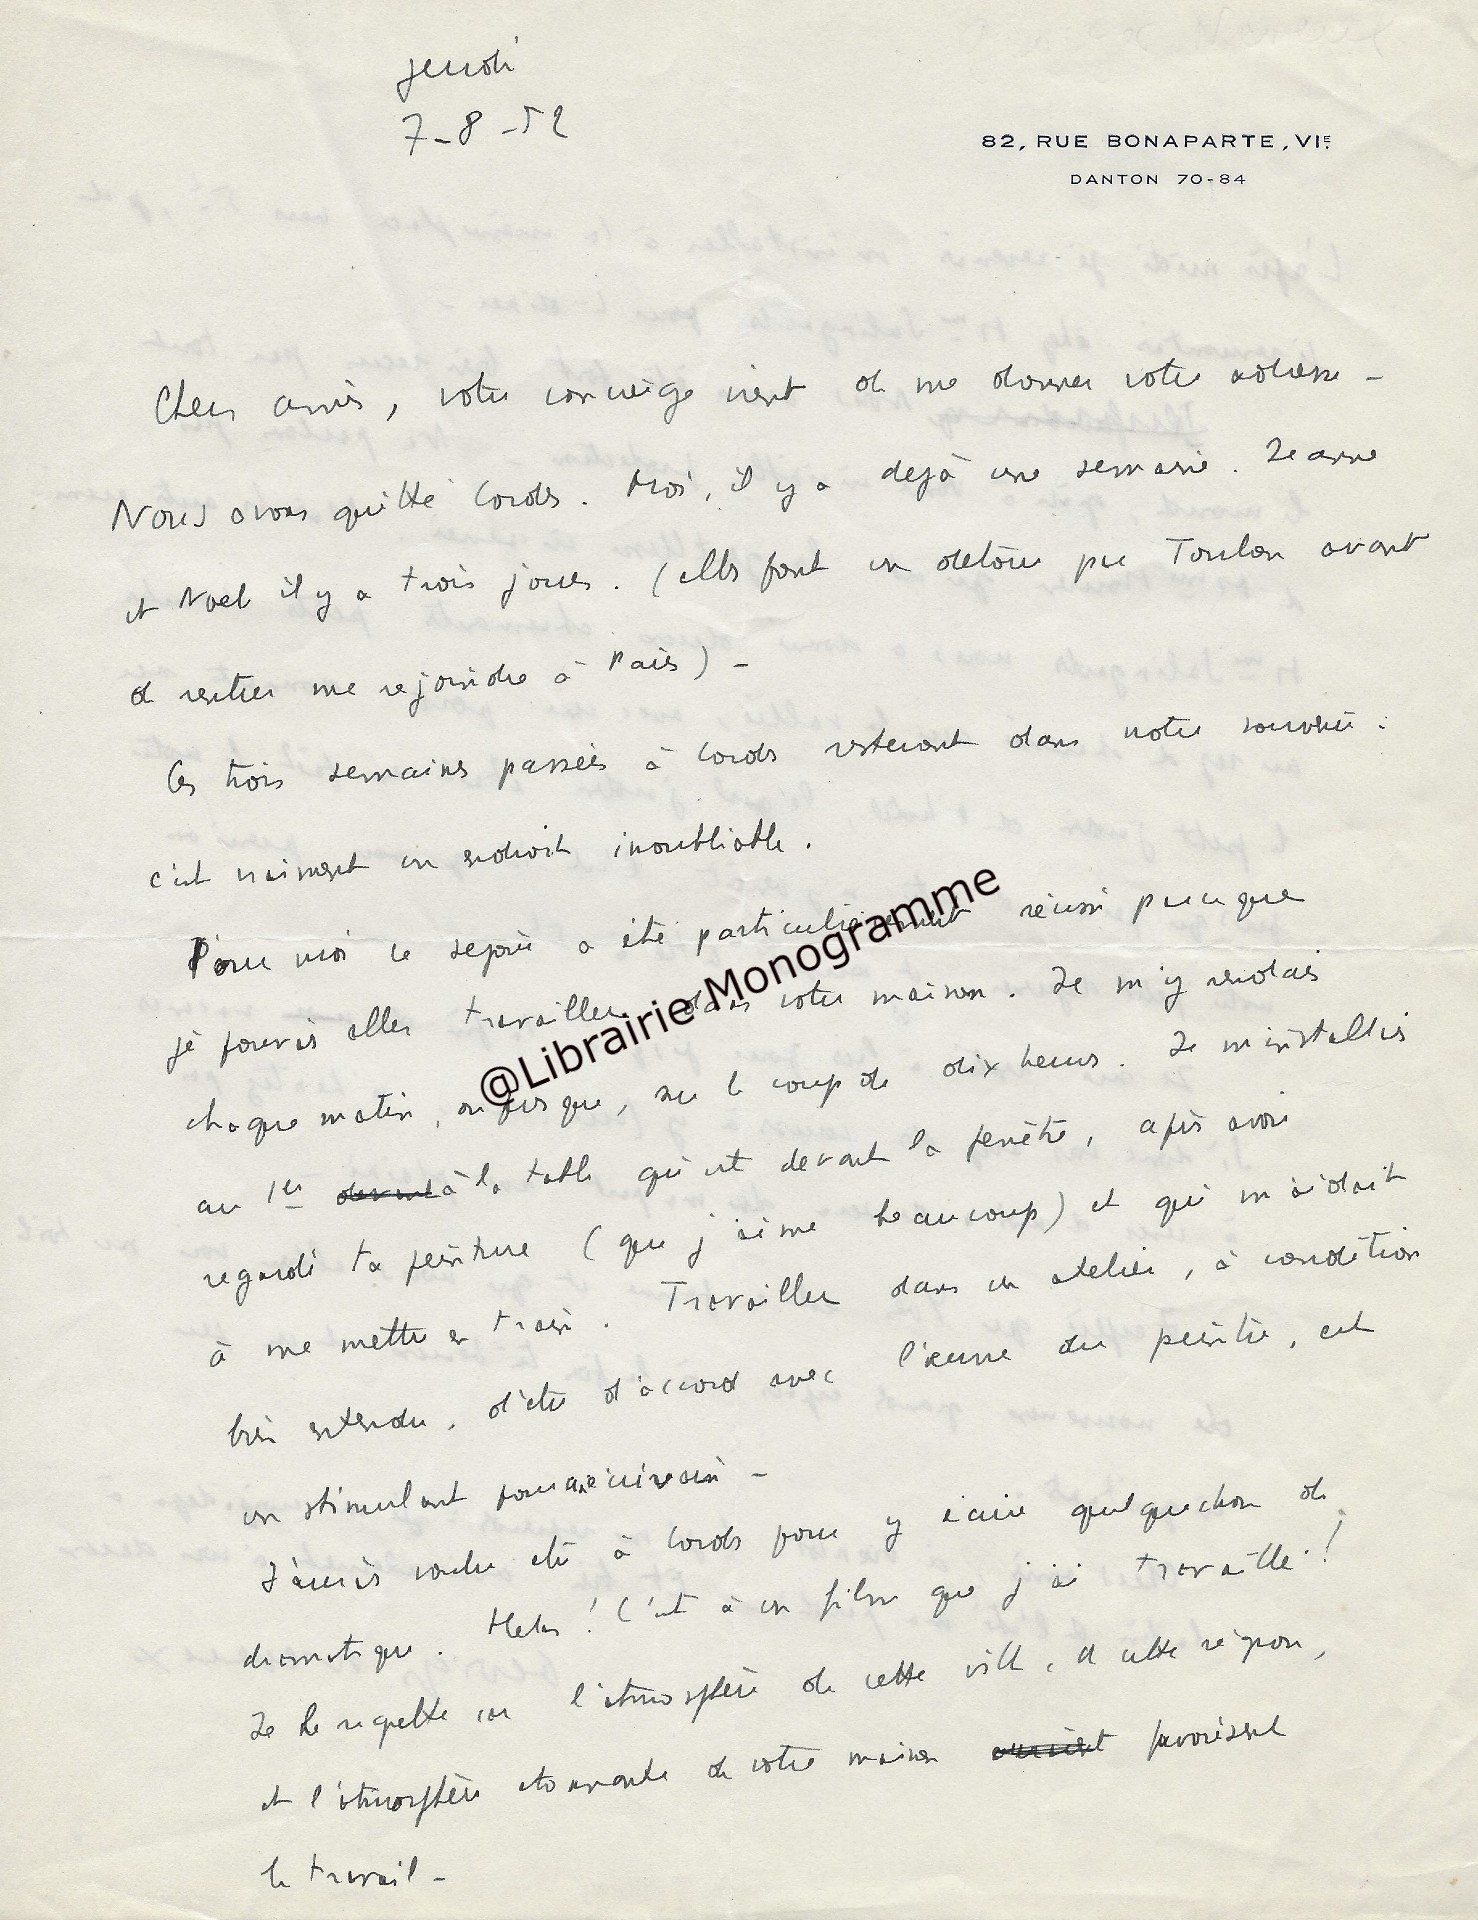 jeudi
7-8-52
82, RUE BONAPARTE, VIE.
DANTON 70-84
Chers amis, votre concierge vient de me donner votre adresse -
Nous avons quitté Cordes. Moi, il y a déjà une semaine. Jeanne
et Noël il y a trois jours. (elles font un détour par Toulon avant
de rentrer me rejoindre à Paris) -
Ces trois semaines passées à Cordes resteront dans notre souvenir :
c'est vraiment un endroit inoubliable.
Pour moi ce séjour a été particulièrement réussi puisque
je pouvais aller travailler dans votre maison. Je m'y rendais
chaque matin, ou presque, sur le coup de dix heures. Je m'installais
au 1er devant à la table qui est devant la fenêtre, après avoir
regardé ta peinture (que j'aime beaucoup) et qui m'aidait
à me mettre en train. Travailler dans un atelier, à condition
bien entendu, d'être d'accord avec l'œuvre du peintre, est
un stimulant pour un écrivain -
J'aurais voulu être à Cordes pour y écrire quelque chose de
dramatique. Hélas ! C'est à un film que j'ai travaillé !
Je le regrette car l'atmosphère de cette ville, et cette région,
et l'atmosphère étonnante de votre maison favorisent
le travail -
@Librairie Monogramme